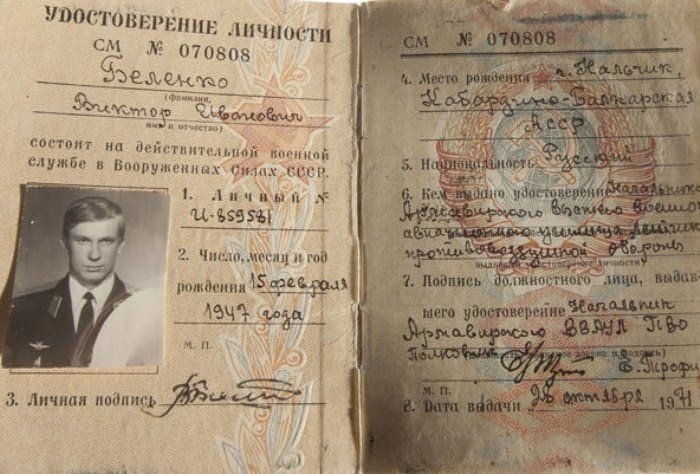 УДОСТОВЕРЕНИЕ ЛИЧНОСТИ
СМ № 070808
Беленко
(фамилия,
Виктор Иванович
имя и отчество)
состоит на действительной военной
службе в Вооруженных Силах СССР.
1. Личный №
И-859531
2. Число, месяц и год
рождения 15 февраля
1947 года
М. П.
3. Личная подпись
СМ № 070808
4. Место рождения г. Нальчик,
Кабардино-Балкарская
АССР
5. Национальность Русский
6. Кем выдано удостоверение Начальник
Армавирского высшего военного
авиационного училища летчиков
противовоздушной обороны
7. Подпись должностного лица, выдав-
шего удостоверение Начальник
Армавирского ВВАУЛ ПВО
полковник
М. П.
8. Дата выдачи 28 октября 1971